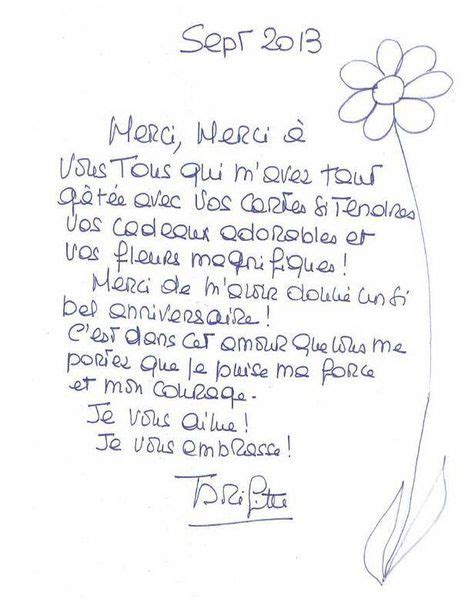 Sept 2013
Merci, Merci à
Vous Tous qui m'avez tant
gâtée avec vos cartes si Tendres
vos cadeaux adorables et
vos fleurs magnifiques!
Merci de m'avoir donné un si
bel anniversaire!
C'est dans cet amour que vous me
portez que je puise ma force
et mon courage.
Je vous aime!
Je vous embrasse!
Brigitte